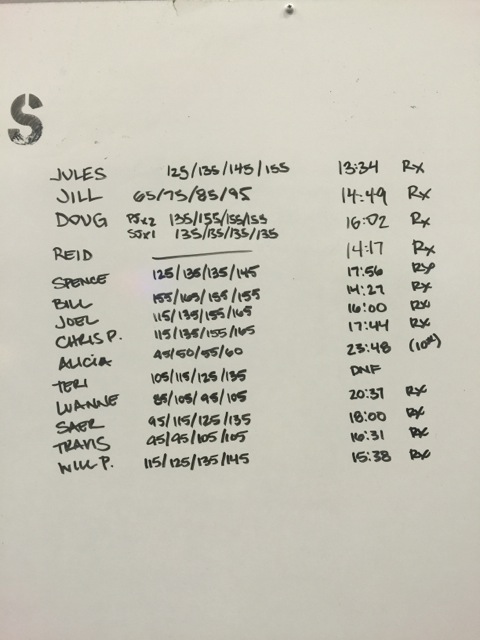 S
JULES 125/135/145/155 13:34 RX
JILL 65/75/85/95 14:49 RX
DOUG PJx2 135/155/155/155 16:02 RX
SJx1 135/135/135/135
REID 14:17 RX
SPENCE 125/135/135/145 17:56 RX
BILL 155/165/155/155 14:27 RX
JOEL 115/135/155/165 16:00 RX
CHRIS P. 115/135/155/165 17:44 RX
ALICIA 45/50/55/60 23:48
TERI 105/115/125/135 DNF
LUANNE 85/105/95/105 20:37 RX
SAER 95/115/125/135 18:00 RX
TRAVIS 95/95/105/105 16:31 RX
WILL P. 115/125/135/145 15:38 RX